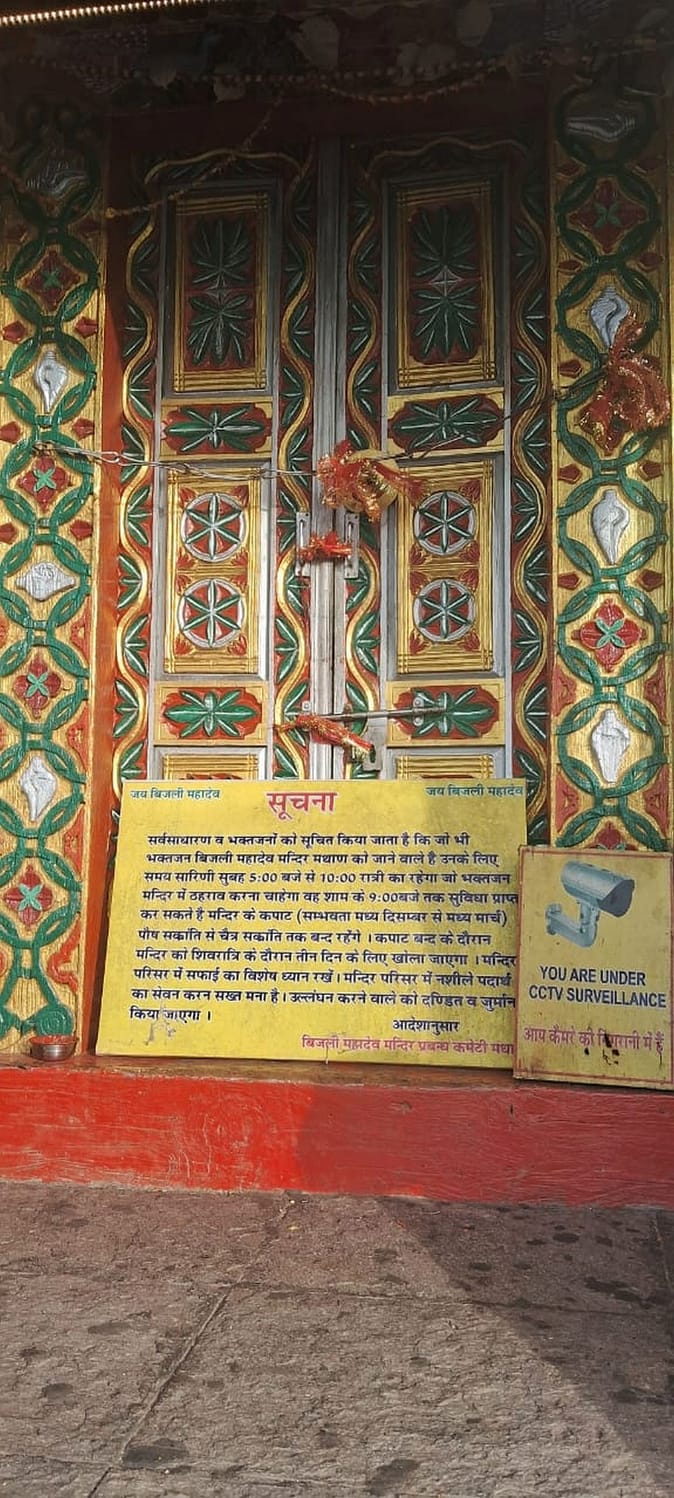 जय बिजली महादेव
सूचना
जय बिजली महादेव
सर्वसाधारण व भक्तजनों को सूचित किया जाता है कि जो भी
भक्तजन बिजली महादेव मन्दिर मथाण को जाने वाले है उनके लिए
समय सारिणी सुबह 5:00 बजे से 10:00 रात्री का रहेगा जो भक्तजन
मन्दिर में ठहराव करना चाहेगा वह शाम के 9:00बजे तक सुविधा प्राप्त
कर सकते है मन्दिर के कपाट (सम्भवता मध्य दिसम्बर से मध्य मार्च)
पौष सक्रांति से चैत्र सक्रांति तक बन्द रहेंगे । कपाट बन्द के दौरान
मन्दिर को शिवरात्रि के दौरान तीन दिन के लिए खोला जाएगा । मन्दिर
परिसर में सफाई का विशेष ध्यान रखें । मन्दिर परिसर में नशीले पदार्थ
का सेवन करन सख्त मना है । उल्लंघन करने वाले को दण्डित व जुर्मान
किया जाएगा ।
आदेशानुसार
बिजली महादेव मन्दिर प्रबन्ध कमेटी मथा
YOU ARE UNDER
CCTV SURVEILLANCE
आप कैमरे की निगरानी में हैं